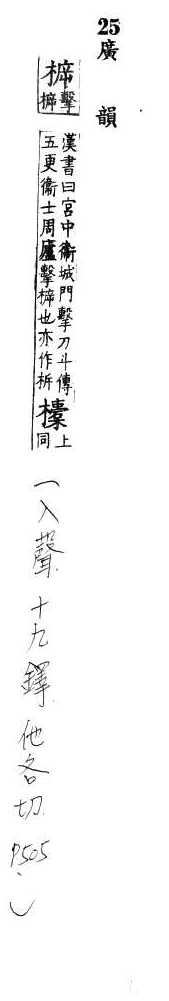 25
廣韻
𣔳
擊
𣔳
漢書曰宮中衞城門擊刀斗傳
五更衞士周廬擊𣔳也亦作柝
欜
上
同
(入聲.十九鐸.他各切.P505.)